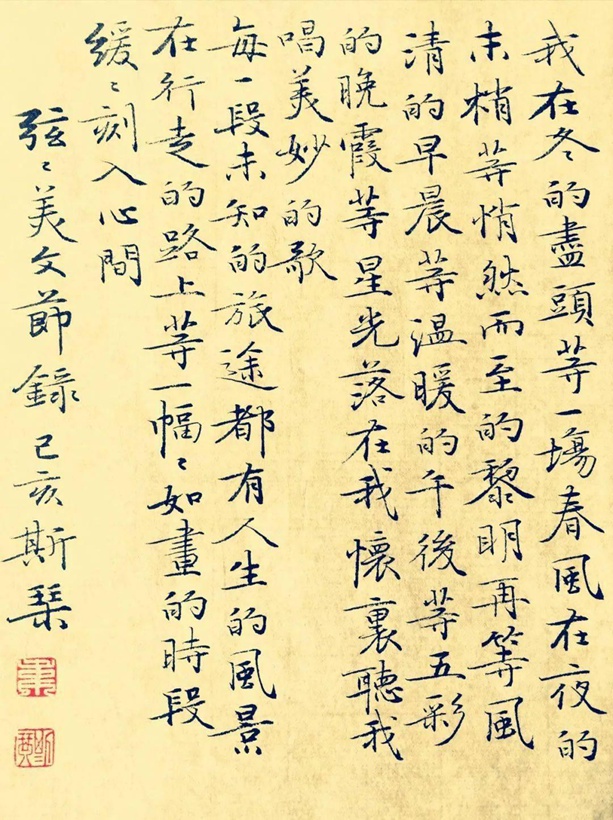 我在冬的盡頭等一場春風在夜的
末梢等悄然而至的黎明再等風
清的早晨等温暖的午後等五彩
的晚霞等星光落在我懷裏聽我
唱美妙的歌
每一段未知的旅途都有人生的風景
在行走的路上等一幅〻如畫的時段
緩〻刻入心間
弦〻美文節録己亥斯琹